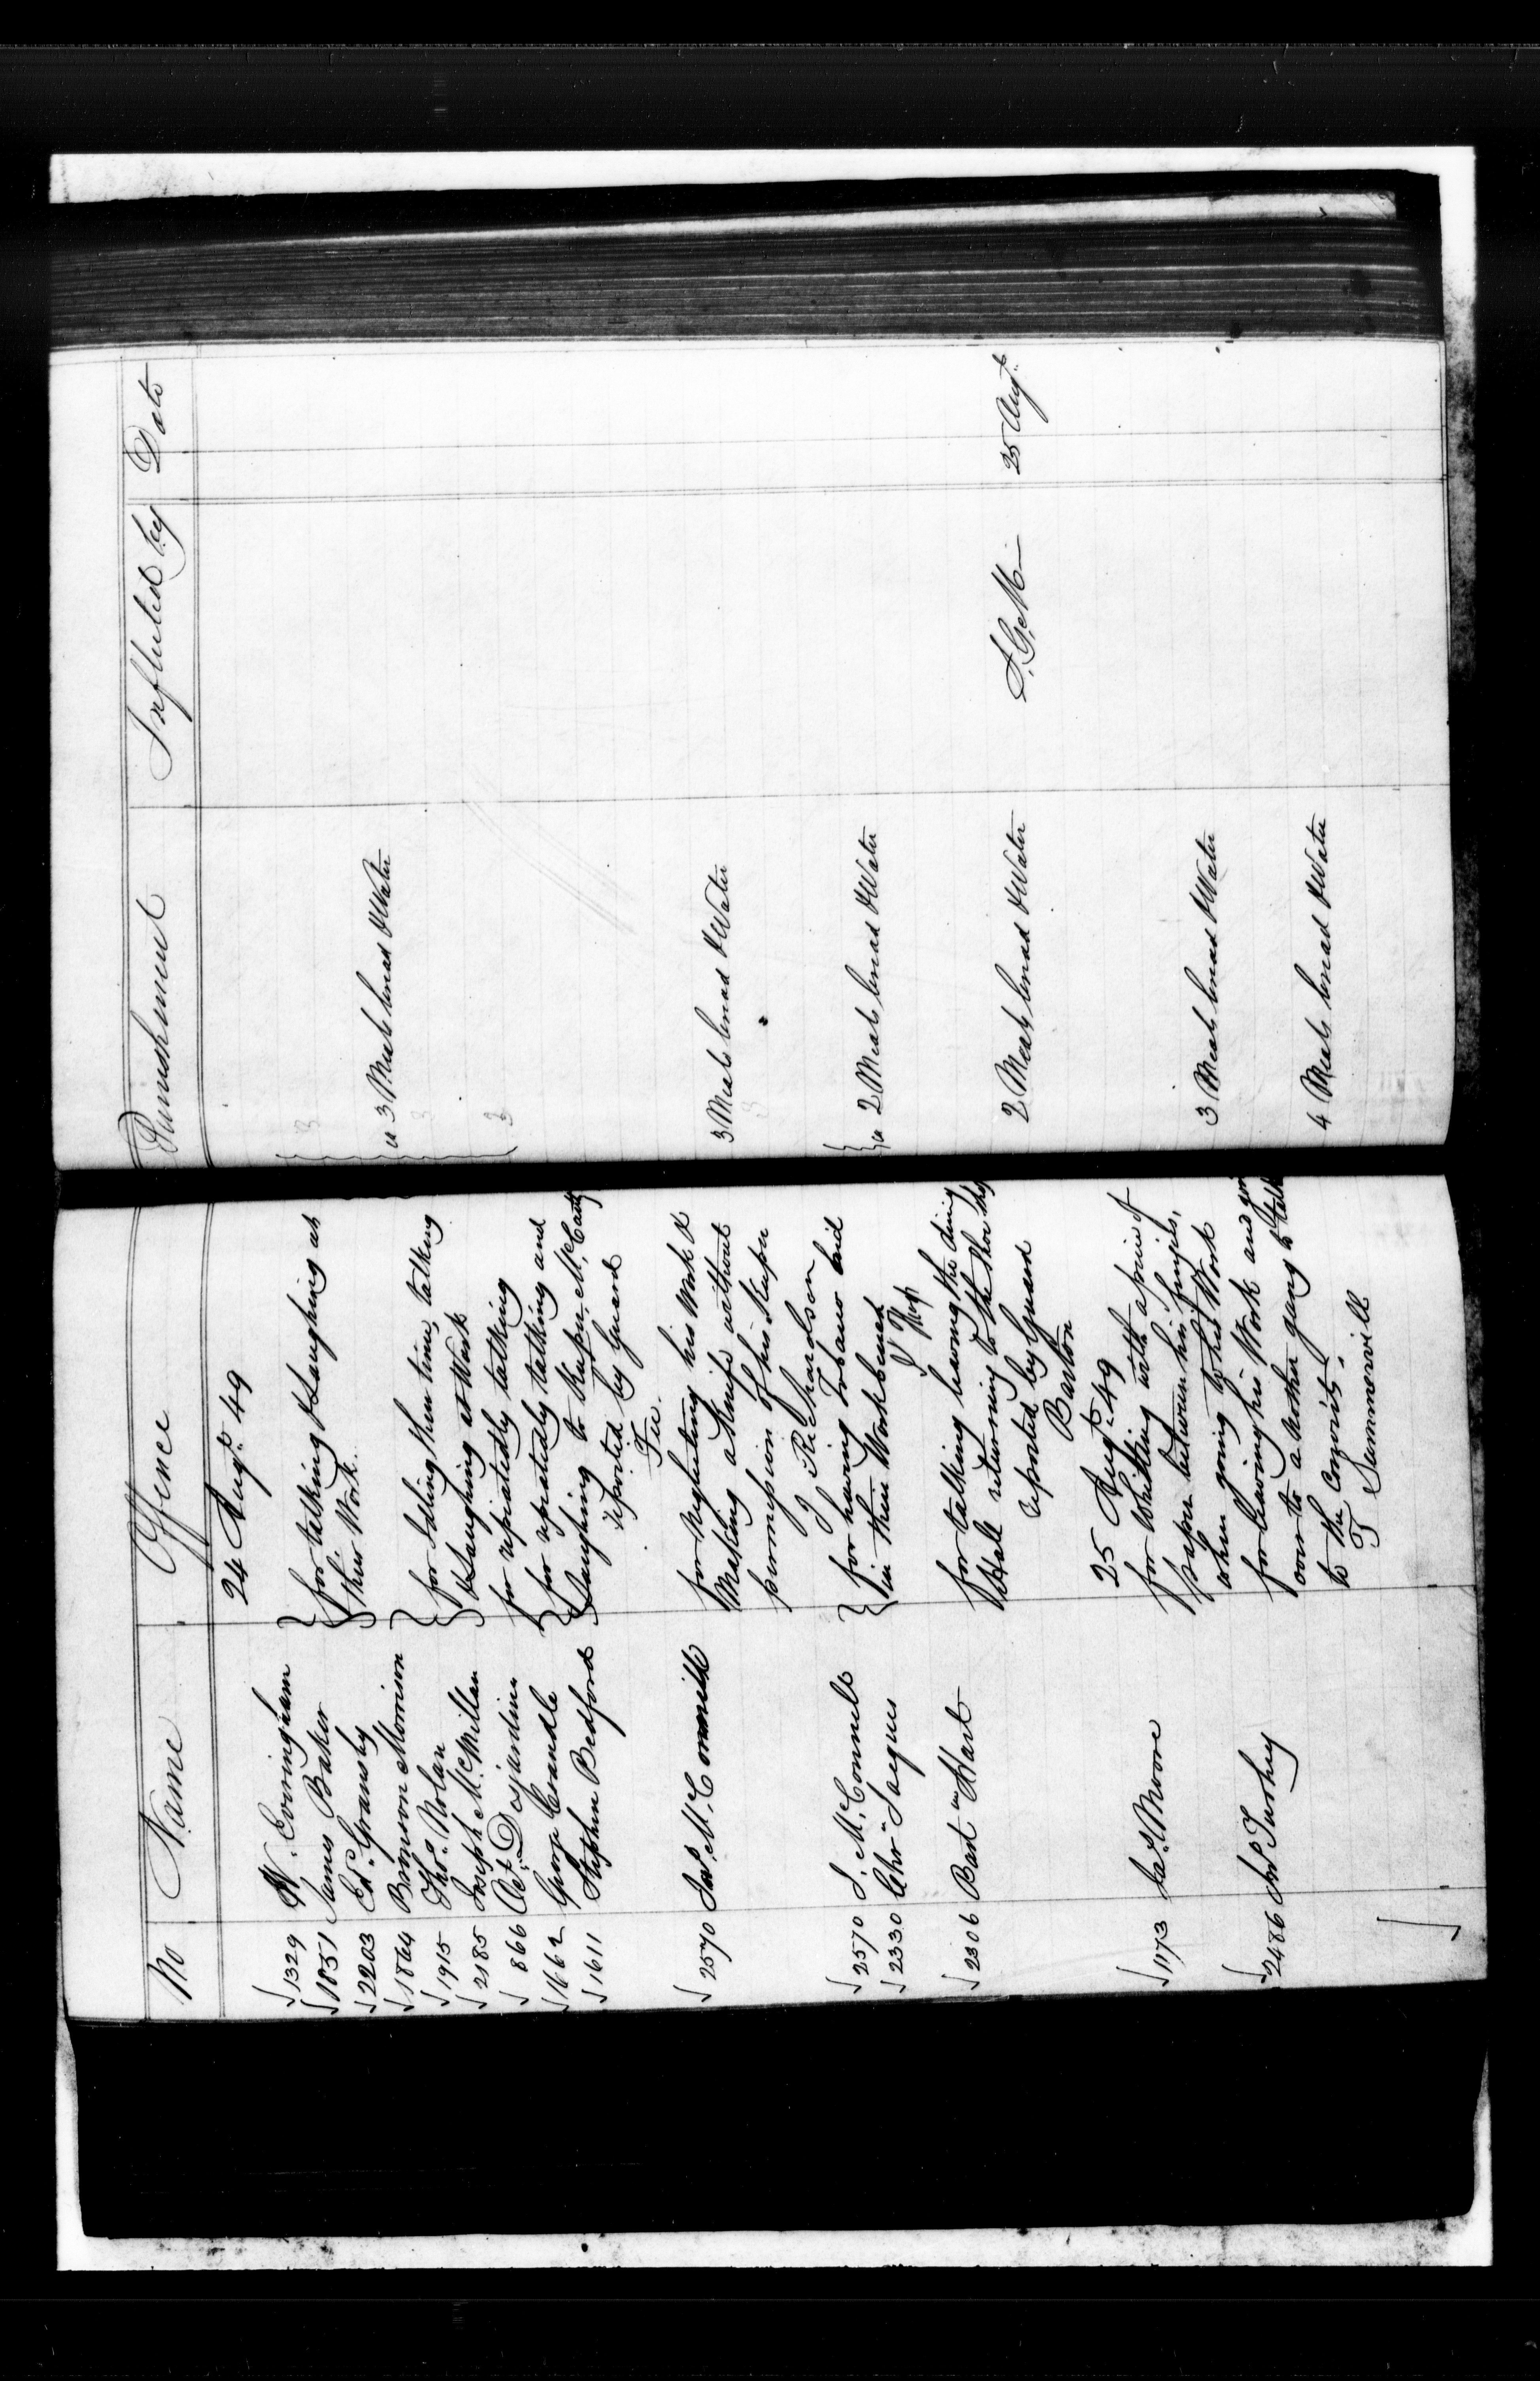 No Name Offence Punishment Inflicted by Date
24 Augt. 49
1329 W. Everingham
1851 James Baker for talking & laughing at
2203 Ed. Gransby their Work.
1864 Bronson Morrison
1915 Thos. Nolan for Idling their time, talking
2185 Joseph McMillan & laughing at Work
866 Oct. Desjardins for repeatedly talking
1662 George Crandle for repeatedly talking and
1611 Stephen Bedford laughing to Keeper McCarthy
reported by Guard
a 3 Meals bread & Water
2570 Jas. McConnill for Neglecting his Work &
Making a Knife without
permission of his Keeper
J Richardson
3 Meals bread & Water
2570 J. McConnell for having Tobacco hid
2330 Chr. Jaques in their Work bench
a 2 Meals bread & Water
2306 Bart Hart for talking leaving the dining
Hall returning to the Shoe Shop
reported by Guard
Barton
2 Meals bread & Water 25 Augt.
25 Augt. 49
1173 Jas. Moore for Whistling with a piece of
paper between his fingers,
when going to his Work
3 Meals bread & Water
2486 Jno. Turkey for leaving his Work and going
over to a nother gang to talk
to the Convicts.
T Summerville
4 Meals bread & Water